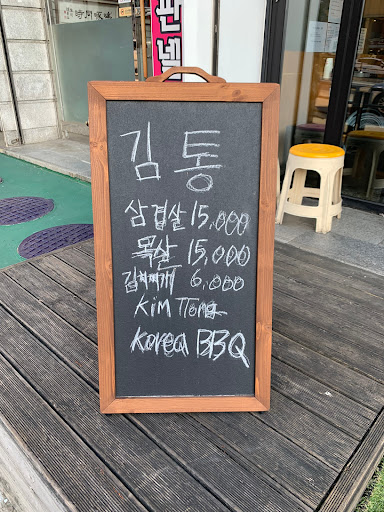 판넬
김통
삼겹살 15,000
목살 15,000
김치찌개 6,000
Kim Tong
Korea BBQ